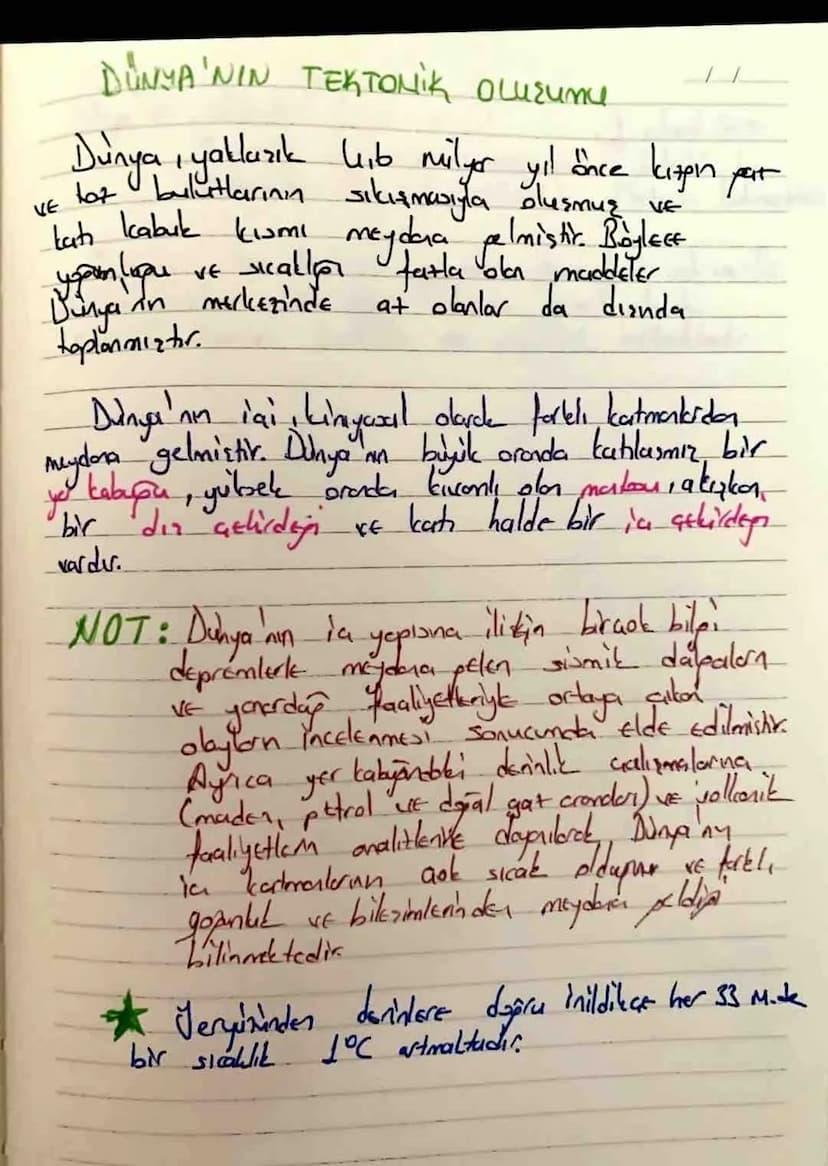 DÜNYA'NIN TEKTONİK OLUŞUMU
/ /
Dünya, yaklaşık milyar yıl önce kızgın gaz
ve toz bulutlarının sıkışmasıyla oluşmuş ve
katı kabuk kısmı meydana gelmiştir. Böylece
yoğunluğu ve sıcaklığı fazla olan maddeler
Dünya'nın merkezinde az olanlar da dışında
toplanmıştır.
Dünya'nın içi, kimyasal olarak farklı katmanlardan
meydana gelmiştir. Dünya'nın büyük oranda katılaşmış bir
yer kabuğu, yüksek oranda kıvamlı olan mantosu, akışkan
bir dış çekirdeği ve katı halde bir iç çekirdeği
vardır.
NOT: Dünya'nın iç yapısına ilişkin birçok bilgi
depremlerle meydana gelen sismik dalgaların
ve yanardağ faaliyetleriyle ortaya çıkan
olayların incelenmesi sonucunda elde edilmiştir.
Ayrıca yer kabuğundaki derinlik çalışmalarına
(maden, petrol ve doğal gaz aramaları) ve volkanik
faaliyetlerin analizlerine dayanılarak, Dünya'nın
iç katmanlarının çok sıcak olduğunu ve farklı
yoğunluk ve bileşimlerinden meydana geldiği
bilinmektedir.
★ Yeryüzünden derinlere doğru inildikçe her 33 m.de
bir sıcaklık 1°C artmaktadır.